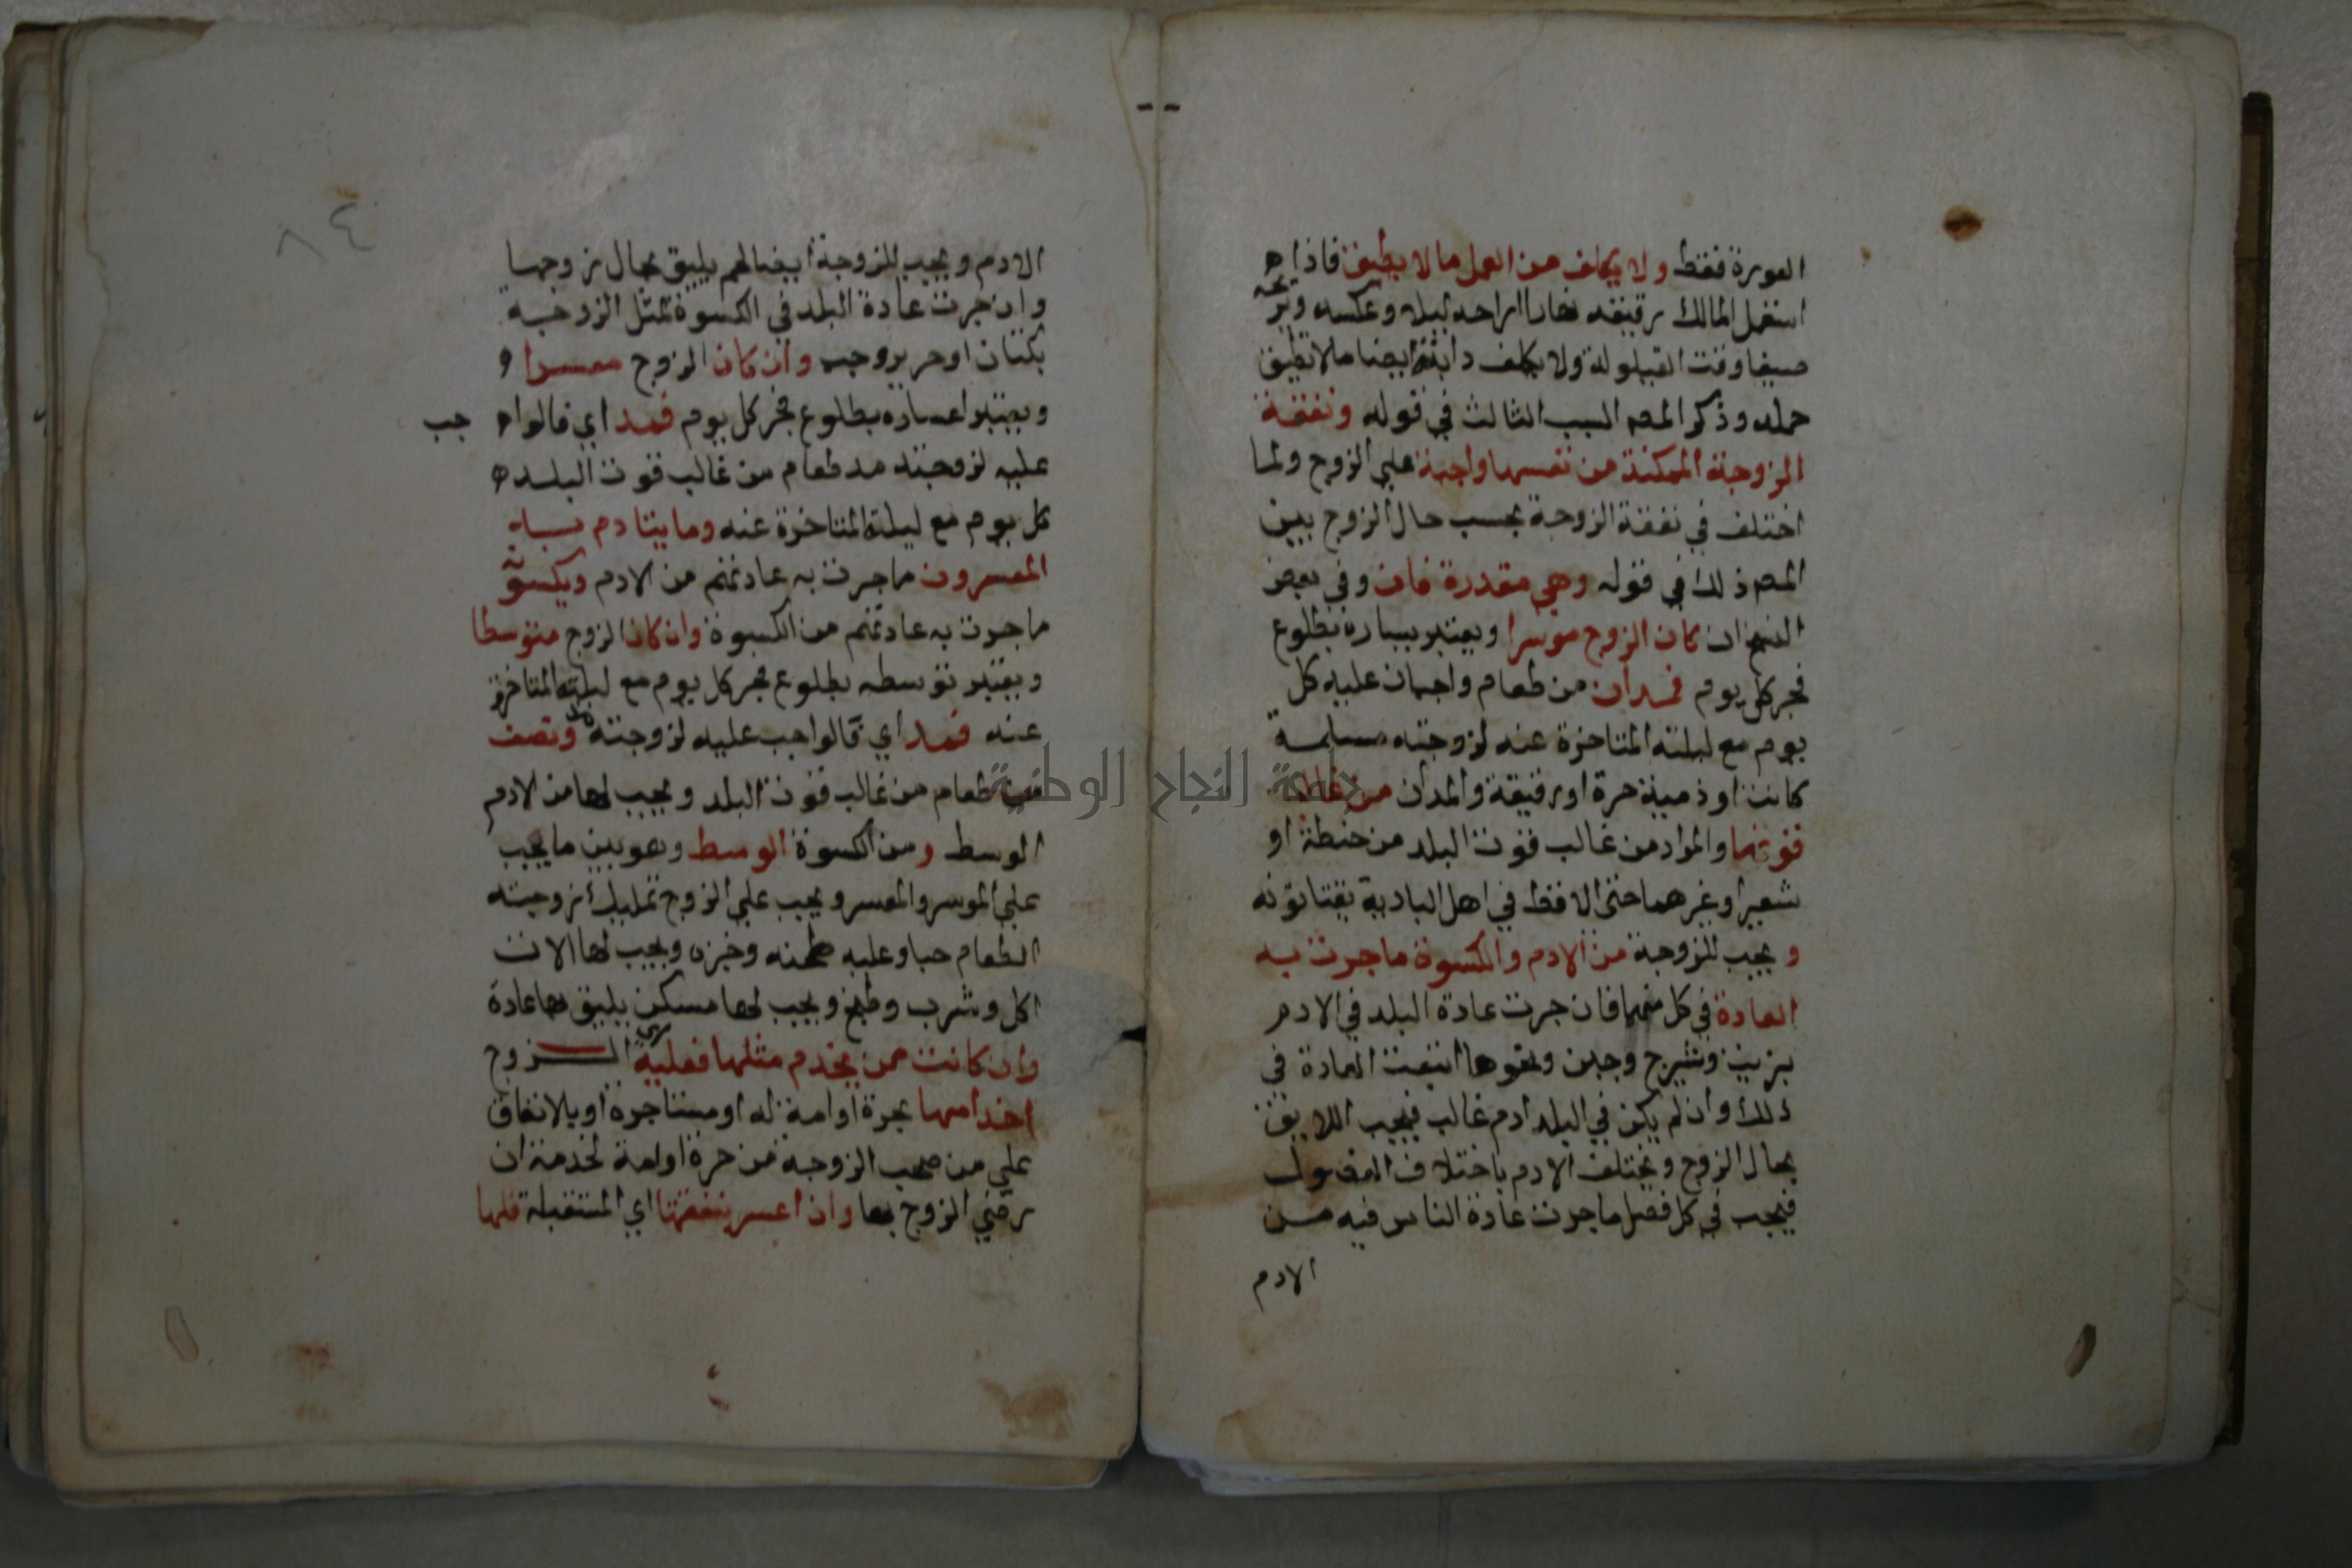 العورة فقط ولا يكلف من العمل ما لا يطيق فاذا ه
استعمل المالك رقيقه نهارا اراحه ليلا وعكسه ويريحه
صيفا وقت القيلولة ولا يكلف دابته ايضا ما لا تطيق
حمله وذكر المصـ السبب الثالث في قوله ونفقة
الزوجة الممكنة من نفسها واجبة علي الزوج ولما
اختلف في نفقة الزوجة بحسب حال الزوج بين
المصـ ذلك في قوله وهي مقدرة فان وفي بعض
النسخ ان كان الزوج موسرا ويعتبر يساره بطلوع
فجر كل يوم فمدان من طعام واجبان عليه كل
يوم مع ليلته المتاخرة عنه لزوجته مسلمة
كانت او ذمية حرة او رقيقة والمدان من غالب
قوتها والمراد من غالب قوت البلد من حنطة او
شعير او غيرهما حتى الاقط في اهل البادية يقتاتونه
و يجب للزوجة من الادم والكسوة ما جرت به
العادة في كل منهما فان جرت عادة البلد في الادم
بزيت وشيرج وجبن ونحوها اتبعت العادة في
ذلك وان لم يكن في البلد ادم غالب فيجب اللايق
بحال الزوج ويختلف الادم باختلاف الفصول
فيجب في كل فصل ما جرت عادة الناس فيه من
الادم
٨٤
الادم ويجب للزوجة ايضا لحم يليق بحال زوجها
وان جرت عادة البلد في الكسوة لمثل الزوجة
بكتان او حرير وجب وان كان الزوج معسرا و
ويعتبر اعساره بطلوع فجر كل يوم فمد اي فالوا ه جب
عليه لزوجته مد طعام من غالب قوت البلد ه
كل يوم مع ليلته المتاخرة عنه وما يتادم به
المعسرون ما جرت به عادتهم من الادم ويكسونه
ما جرت به عادتهم من الكسوة وان كان الزوج متوسطا
ويعتبر توسطه بطلوع فجر كل يوم مع ليلته المتاخرة
عنه فمد اي فالواجب عليه لزوجته مد ونصف
من طعام من غالب قوت البلد ويجب لها من الادم
الوسط ومن الكسوة الوسط وهو بين ما يجب
علي الموسر والمعسر ويجب علي الزوج تمليك زوجته
الطعام حبا وعليه طحنه وخبزه ويجب لها الات
اكل وشرب وطبخ ويجب لها مسكن يليق بها عادة
وان كانت ممن يخدم مثلها فعليه اي الزوج
اخدامها بحرة او امة له او مستاجرة او بالانفاق
علي من صحب الزوجة من حرة او امة لخدمة ان
رضي الزوج بها وان اعسر بنفقتها اي المستقبلة فلها
جامعة النجاح الوطنية